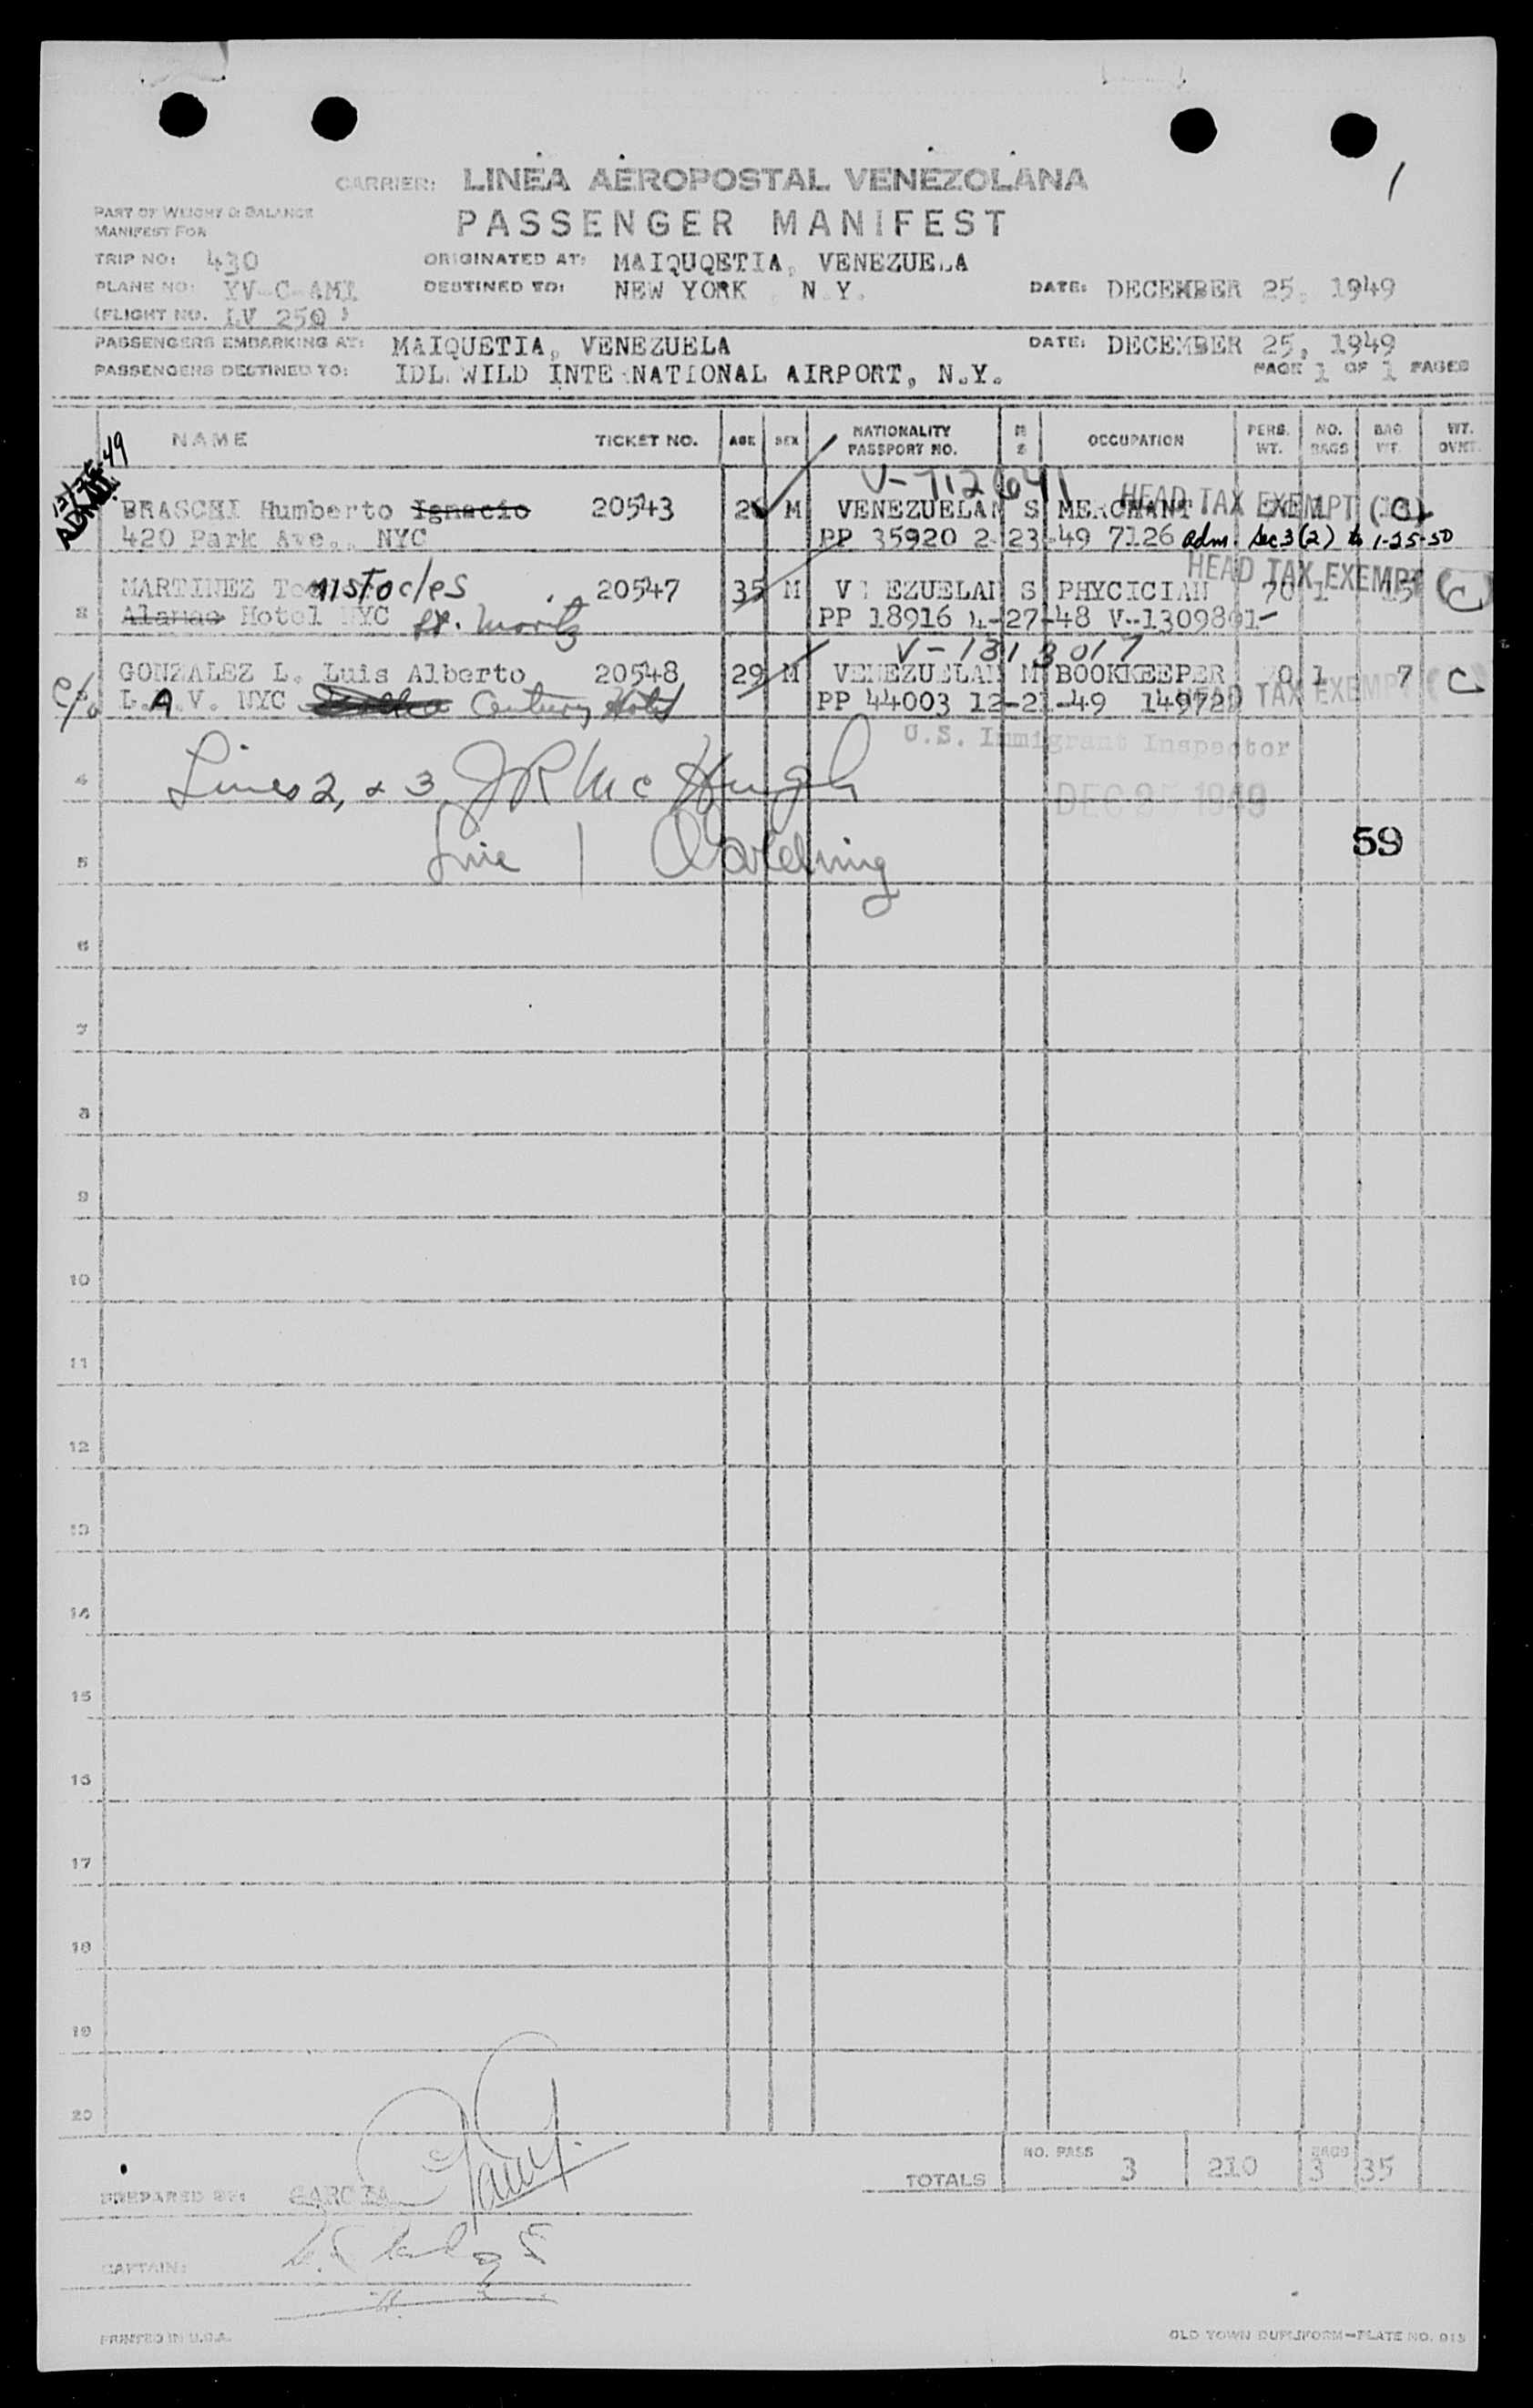 1
CARRIER: LINEA AEROPOSTAL VENEZOLANA
PART OF WEIGHT & BALANCE
MANIFEST FOR
PASSENGER MANIFEST
TRIP NO: 430 ORIGINATED AT: MAIQUQETIA, VENEZUELA
PLANE NO: YV-C-AMI DESTINED TO: NEW YORK N.Y. DATE: DECEMBER 25, 1949
(FLIGHT NO. LV 250)
PASSENGERS EMBARKING AT: MAIQUETIA, VENEZUELA DATE: DECEMBER 25, 1949
PASSENGERS DESTINED TO: IDLEWILD INTERNATIONAL AIRPORT, N.Y. PAGE 1 OF 1 PAGES
NAME TICKET NO. AGE SEX NATIONALITY PASSPORT NO. M S OCCUPATION PERS. WT. NO. BAGS BAG WT. WT. OVMT.
V-712641
BRASCHI Humberto Ignacio 20543 M VENEZUELAN S MERCHANT HEAD TAX EXEMPT (C)
420 Park Ave., NYC PP 35920 2-23-49 7126 Adm. Sec 3(2) to 1-25-50
HEAD TAX EXEMPT (C)
MARTINEZ Temistocles 20547 35 M VENEZUELAN S PHYCICIAN 70 1 15
2 Alamac Hotel NYC St. Moritz PP 18916 4-27-48 V-1309891-
V-1313017
GONZALEZ L. Luis Alberto 20548 29 M VENEZUELAN M BOOKKEEPER 70 1 7 C
c/o L.A.V. NYC Century Hotel PP 44003 12-21-49 149720 HEAD TAX EXEMPT
U.S. Immigrant Inspector
4 Lines 2, & 3 JR McHugh DEC 25 1949
59
5 Line 1
6
7
8
9
10
11
12
13
14
15
16
17
18
19
20
TOTALS NO. PASS 3 210 BAGS 3 35
PREPARED BY: GARCIA
CAPTAIN:
PRINTED IN U.S.A. OLD TOWN DUPLIFORM—PLATE NO. 013